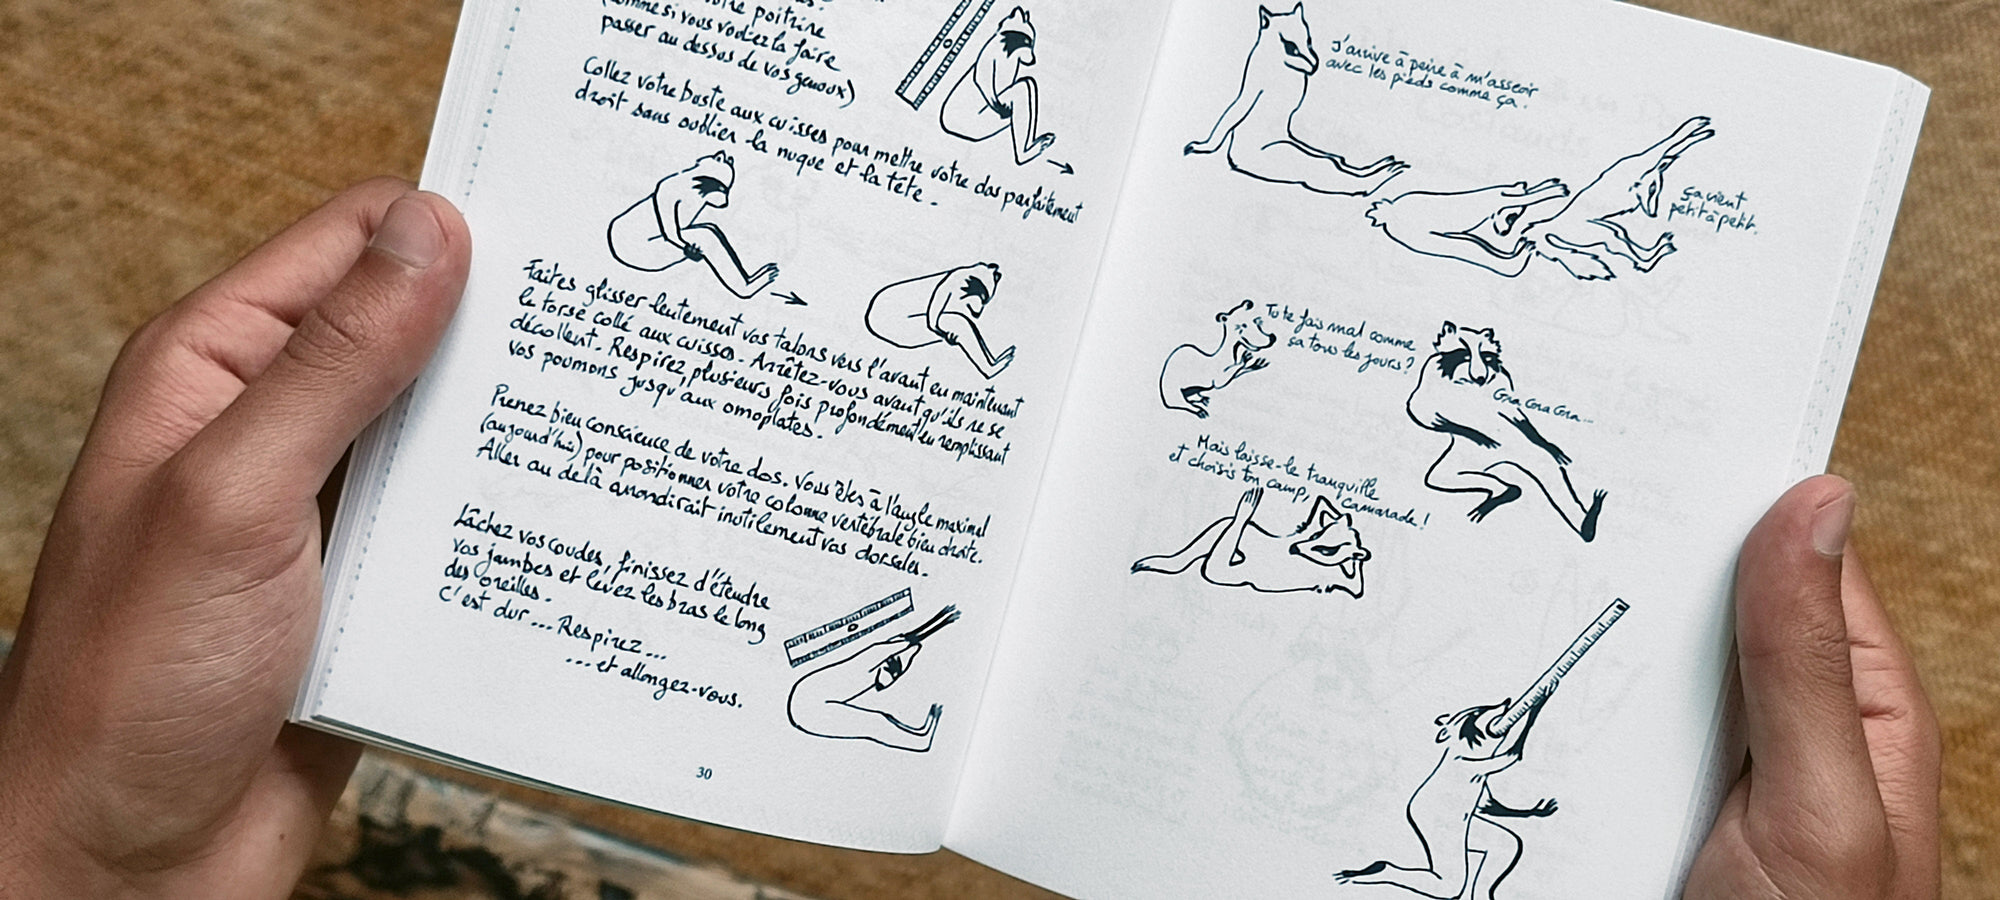 votre poitrine
(comme si vous vouliez la faire
passer au dessus de vos genoux)
Collez votre buste aux cuisses pour mettre votre dos parfaitement
droit sans oublier la nuque et la tête.
Faites glisser lentement vos talons vers l'avant en maintenant
le torse collé aux cuisses. Arrêtez-vous avant qu'ils ne se
décollent. Respirez, plusieurs fois profondément en remplissant
vos poumons jusqu'aux omoplates.
Prenez bien conscience de votre dos. Vous êtes à l'angle maximal
(aujourd'hui) pour positionner votre colonne vertébrale bien droite.
Aller au delà arrondirait inutilement vos dorsales.
Lâchez vos coudes, finissez d'étendre
vos jambes et levez les bras le long
des oreilles.
C'est dur... Respirez...
...et allongez-vous.
30
J'arrive à peine à m'asseoir
avec les pieds comme ça.
ça vient
petit à petit.
Tu te fais mal comme
ça tous les jours?
Gra Gra Gra...
Mais laisse-le tranquille
et choisis ton camp,
camarade!